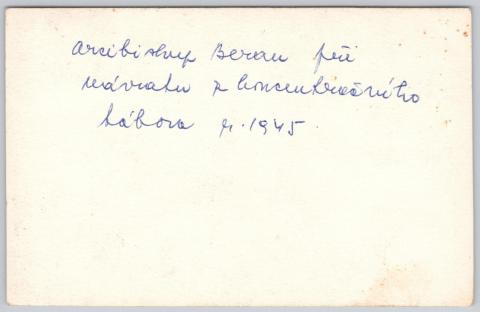 arcibiskup Beran při
návratu z koncentračního
tábora r. 1945.